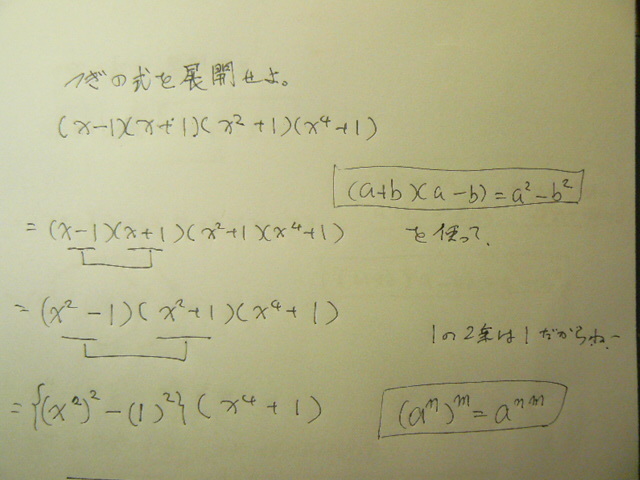 つぎの式を展開せよ。
(x-1)(x+1)(x²+1)(x⁴+1)
(a+b)(a-b)=a²-b²
=(x-1)(x+1)(x²+1)(x⁴+1)
を使って、
=(x²-1)(x²+1)(x⁴+1)
1の2乗は1だからねー
={(x²)²-(1)²}(x⁴+1)
(aⁿ)ᵐ=aⁿᵐ